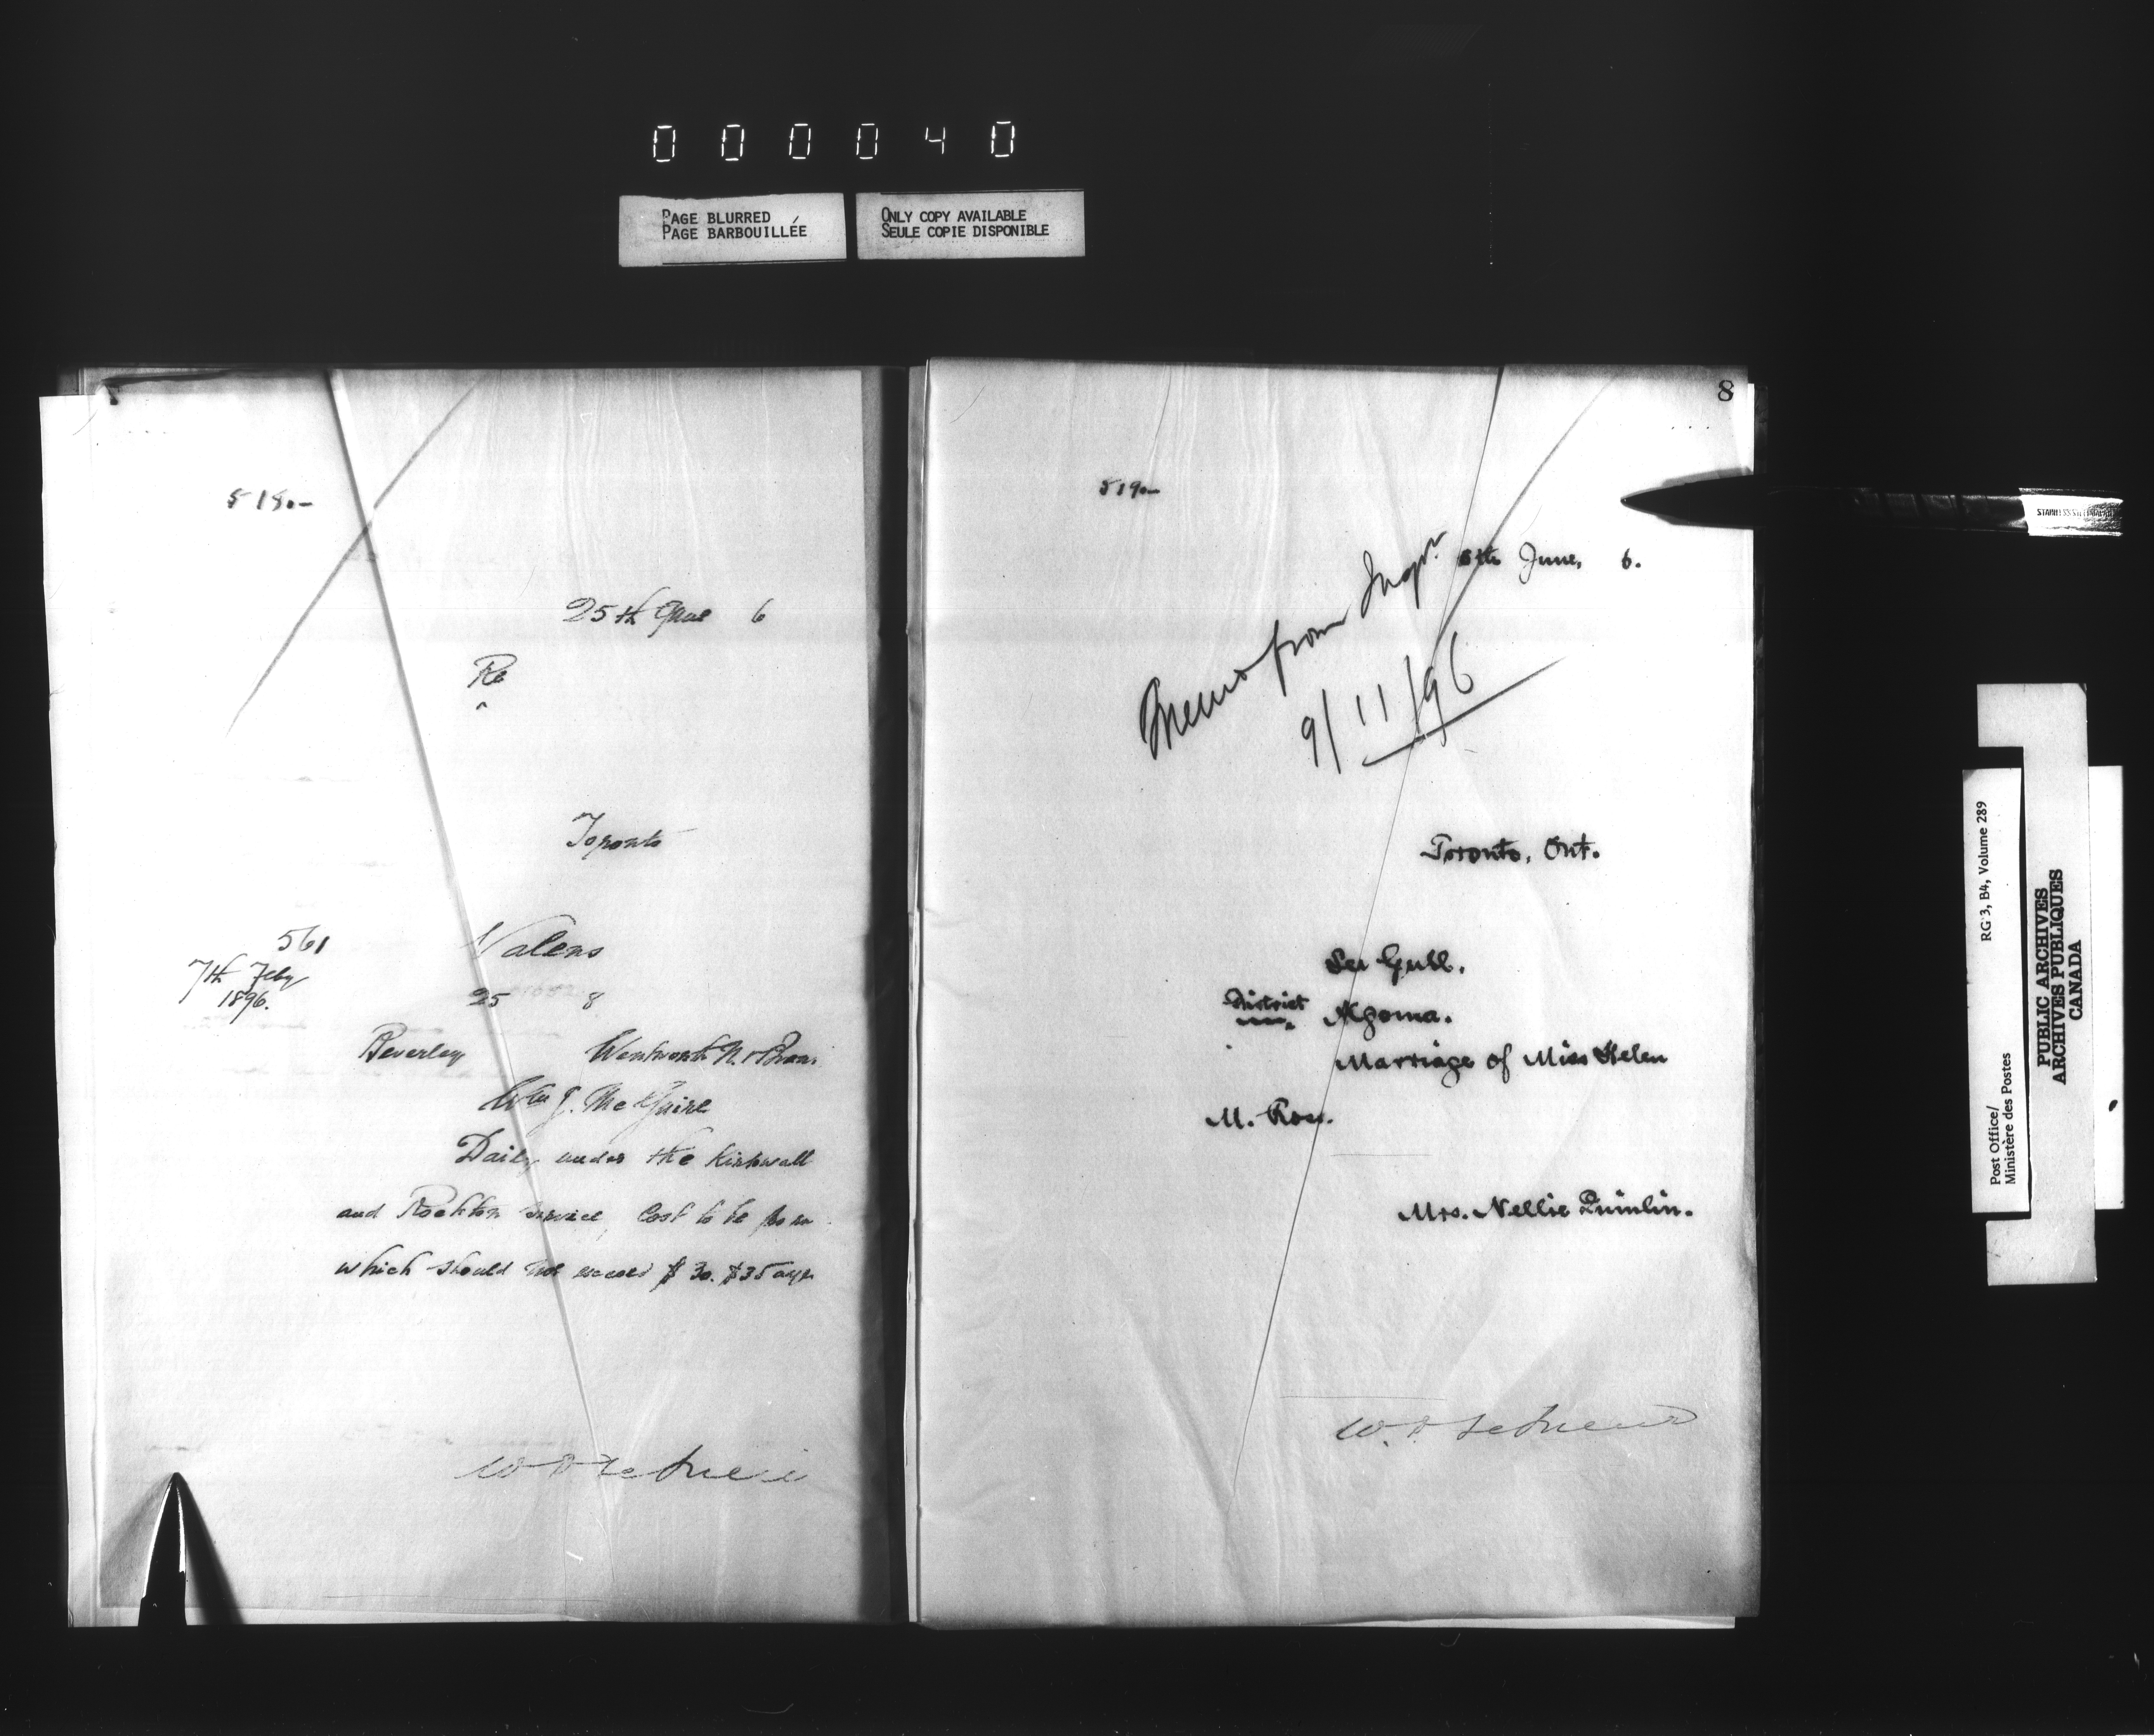 0 0 0 0 4 0
PAGE BLURRED
PAGE BARBOUILLÉE
ONLY COPY AVAILABLE
SEULE COPIE DISPONIBLE
518.-
25th 6
Re
Toronto
561
7th Feby
1896.
Valens
25 8
Beverley Wentworth N. &
Wm J. McGuire
Daily under the Kirkwall
and Rockton service, Cost to be
which should not exceed $30. $35
8
519.-
June, 6.
Memo from Inspr.
9/11/96
Toronto, Ont.
Gull.
District Algoma.
Marriage of Miss Helen
M. Ross.
Mrs. Nellie Quinlin.
RG 3, B4, Volume 289
Post Office/
Ministère des Postes
PUBLIC ARCHIVES
ARCHIVES PUBLIQUES
CANADA